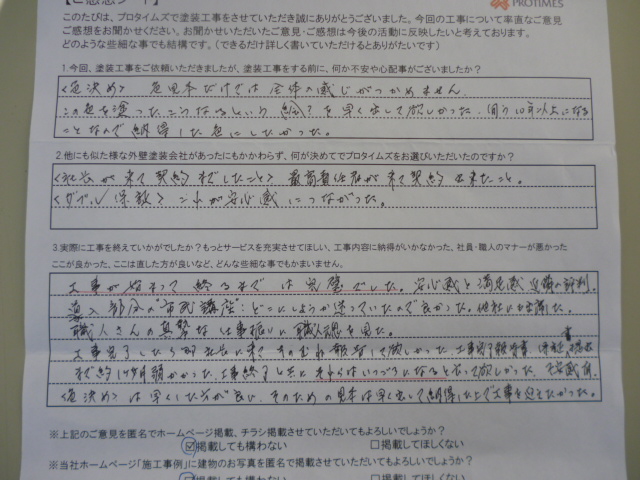 PROTIMES
このたびは、プロタイムズで塗装工事をさせていただき誠にありがとうございました。今回の工事について率直なご意見
ご感想をお聞かせください。お聞かせいただいたご意見・ご感想は今後の活動に反映したいと考えております。
どのような些細な事でも結構です。（できるだけ詳しく書いていただけるとありがたいです）
1.今回、塗装工事をご依頼いただきましたが、塗装工事をする前に、何か不安や心配事がございましたか？
〈色決め〉 色見本だけでは全体の感じがつかめません。
この色を塗ったらこうなるという絵を早く出して欲しかった。 10年以上になる
ことなので納得した色にしたかった。
2.他にも似た様な外壁塗装会社があったにもかかわらず、何が決めてでプロタイムズをお選びいただいたのですか？
〈社長が来て契約までしたこと〉 最高責任者が来て契約出来たこと。
〈ダブル保証〉 これが安心感につながった。
3.実際に工事を終えていかがでしたか？もっとサービスを充実させてほしい、工事内容に納得がいかなかった、社員・職人のマナーが悪かった
ここが良かった、ここは直した方が良いなど、どんな些細な事でもかまいません。
工事が始まって終るまでは完璧でした。安心感と満足感
導入部分の"市民講座"：どこにしようか迷っていたので良かった。他社にも出席した。
職人さんの真摯な仕事振いに職人魂を見た。
工事完了したら 欲しかった。工事完了報告書 保証書
まで約1ヶ月弱かかった。工事終了した そちらはいつごろになると言って欲しかった。
〈色決め〉は早くした方が良い。そのための見本は早く出して納得した上で工事を迎えたかった。
※上記のご意見を匿名でホームページ掲載、チラシ掲載させていただいてもよろしいでしょうか？
☑掲載しても構わない □掲載してほしくない
※当社ホームページ「施工事例」に建物のお写真を匿名で掲載させていただいてもよろしいでしょうか？